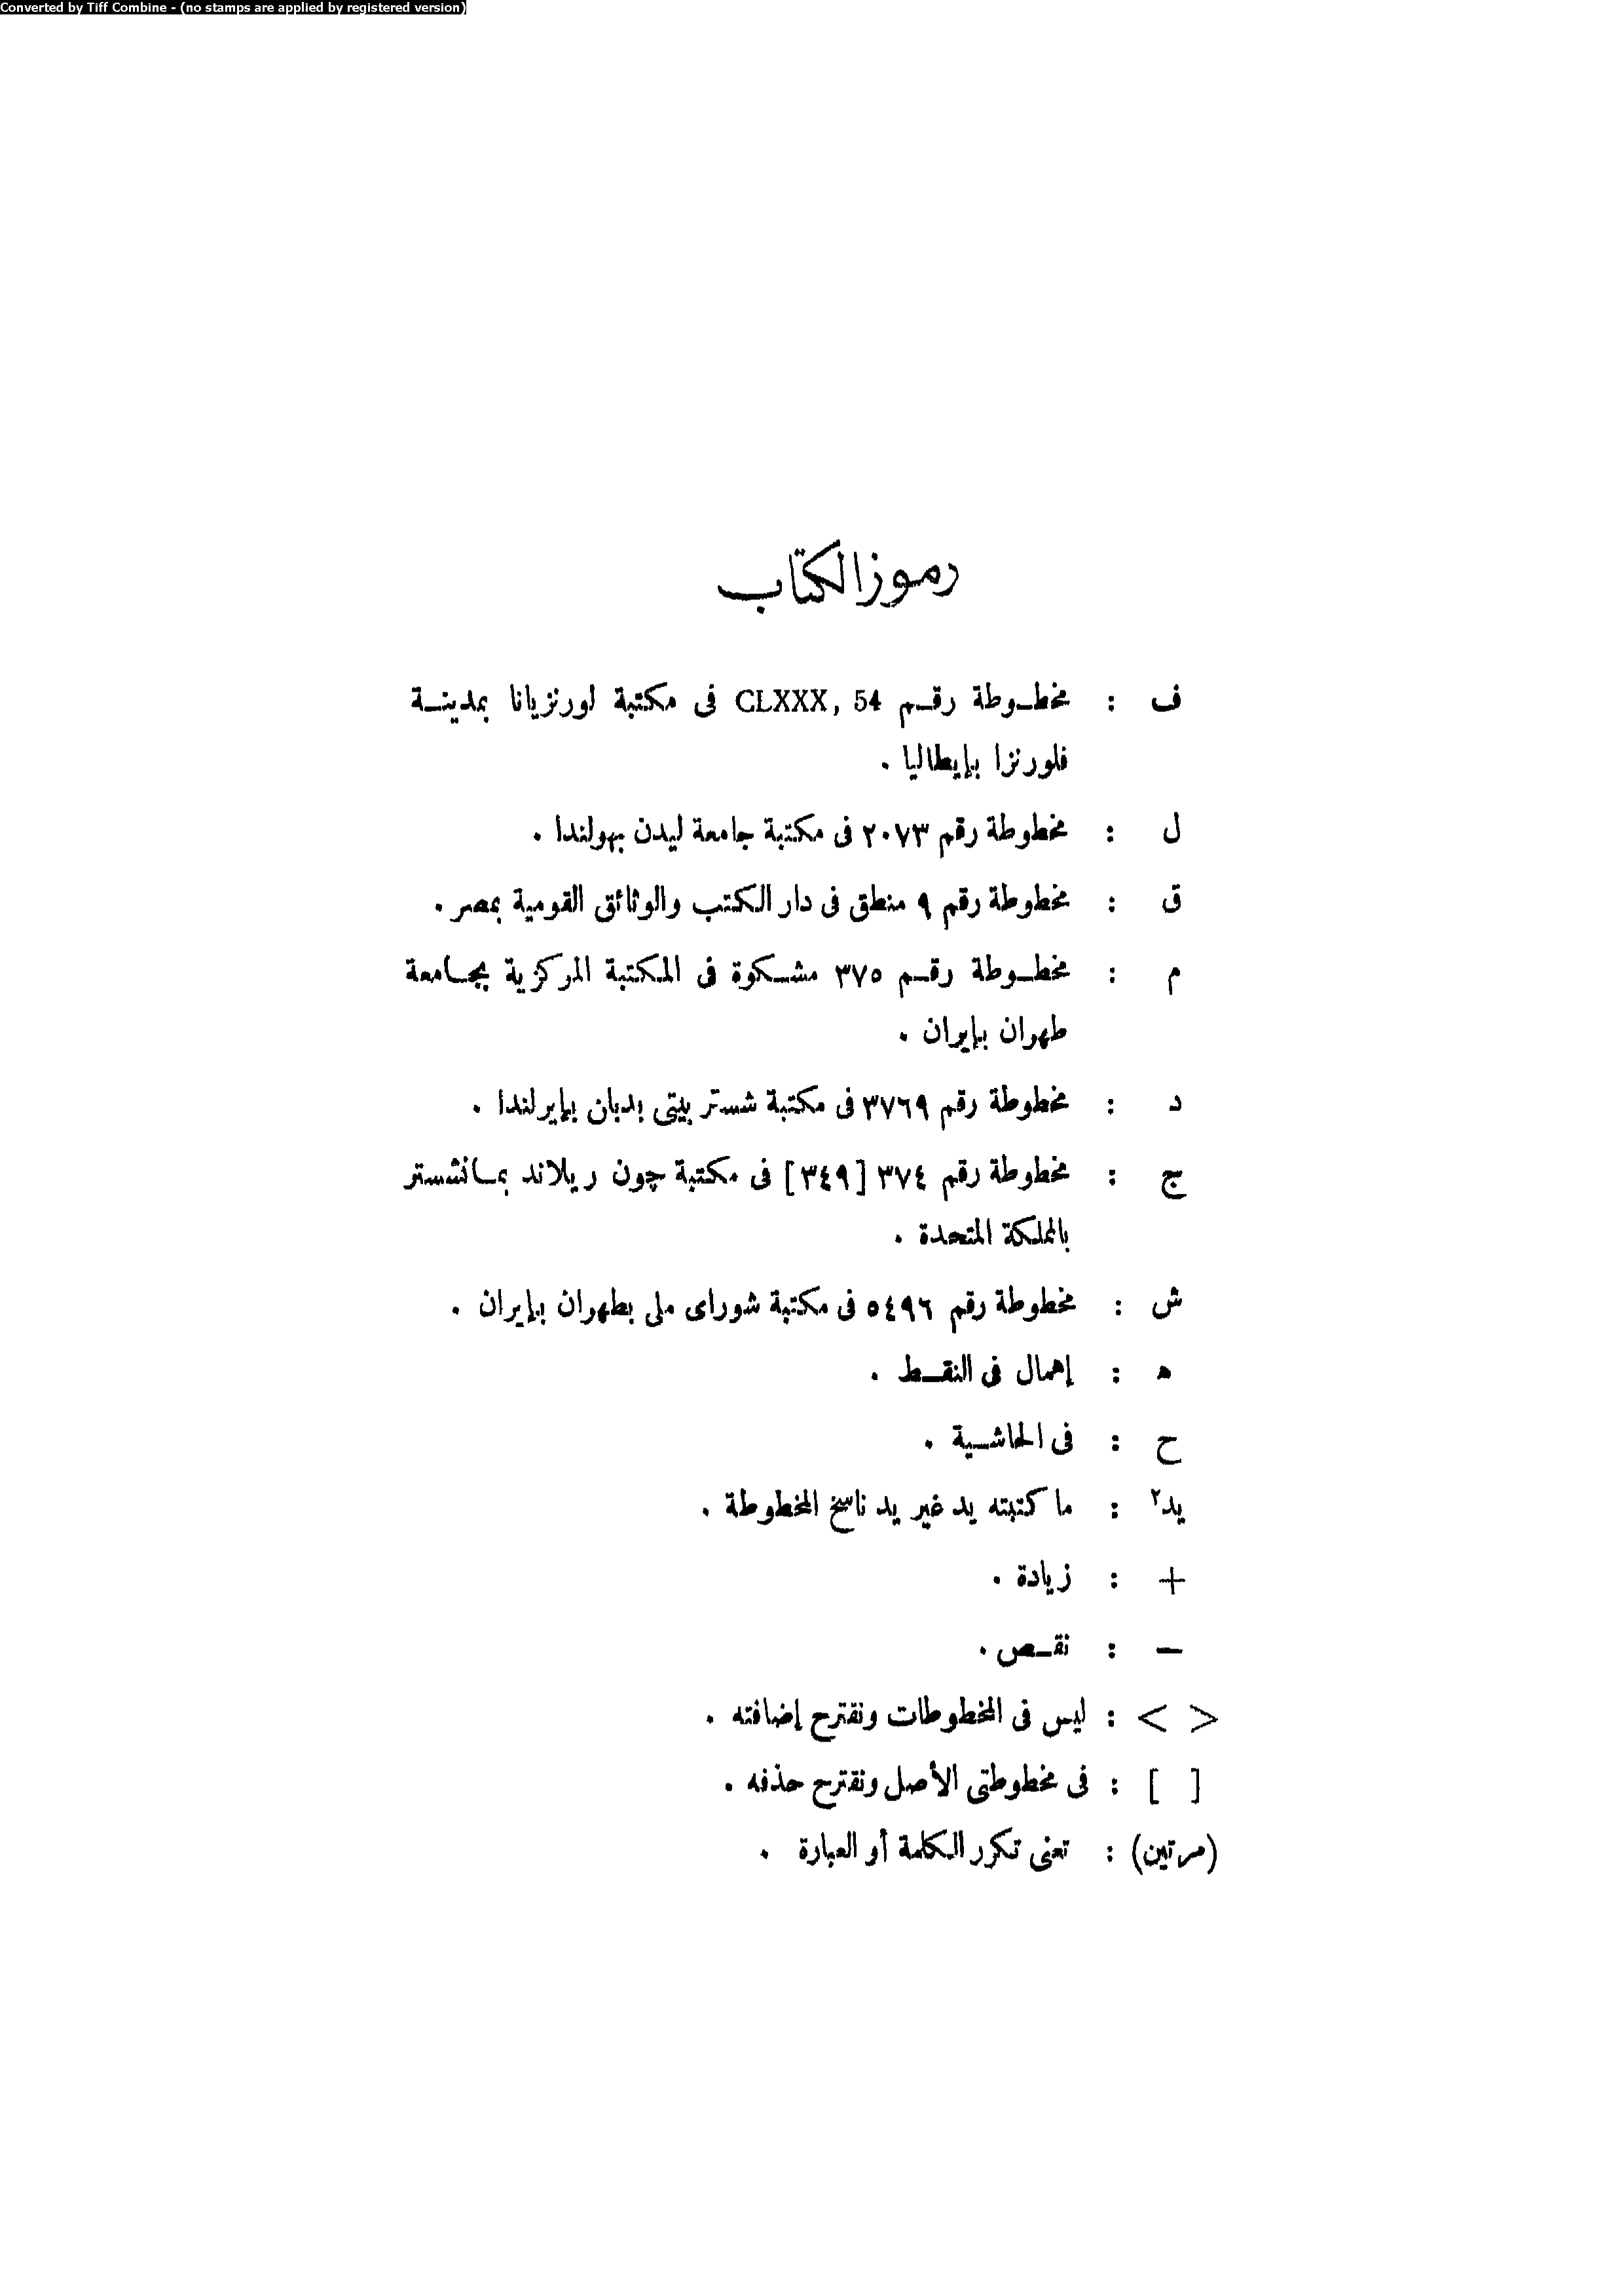 Converted by Tiff Combine - (no stamps are applied by registered version)
رموز الكتاب
ف : مخطوطة رقم CLXXX, 54 فى مكتبة لورنزيانا بمدينة
فلورنزا بإيطاليا .
ل : مخطوطة رقم ٢٠٧٣ فى مكتبة جامعة ليدن بهولندا .
ق : مخطوطة رقم ٩ منطق فى دار الكتب والوثائق القومية بمصر .
م : مخطوطة رقم ٣٧٥ مشكوة فى المكتبة المركزية بجامعة
طهران بإيران .
د : مخطوطة رقم ٣٧٦٩ فى مكتبة شستر بيتى بدبلن بإيرلندا .
ج : مخطوطة رقم ٣٧٤ [٣٤٩] فى مكتبة چون ريلاند بمانشستر
بالمملكة المتحدة .
ش : مخطوطة رقم ٥٤٩٦ فى مكتبة شوراى ملى بطهران بإيران .
ه : إهمال فى النقط .
ح : فى الحاشية .
يد٢ : ما كتبته يد غير يد ناسخ المخطوطة .
+ : زيادة .
— : نقص .
< > : ليس فى المخطوطات ونقترح إضافته .
[ ] : فى مخطوطتى الأصل ونقترح حذفه .
(مرتين) : تعنى تكرر الكلمة أو العبارة .